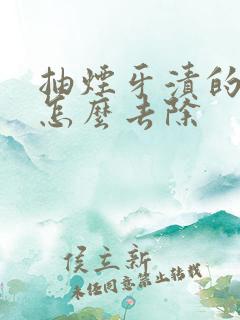 抽煙牙漬的
怎麼去除
侯立新
未经同意禁止转载